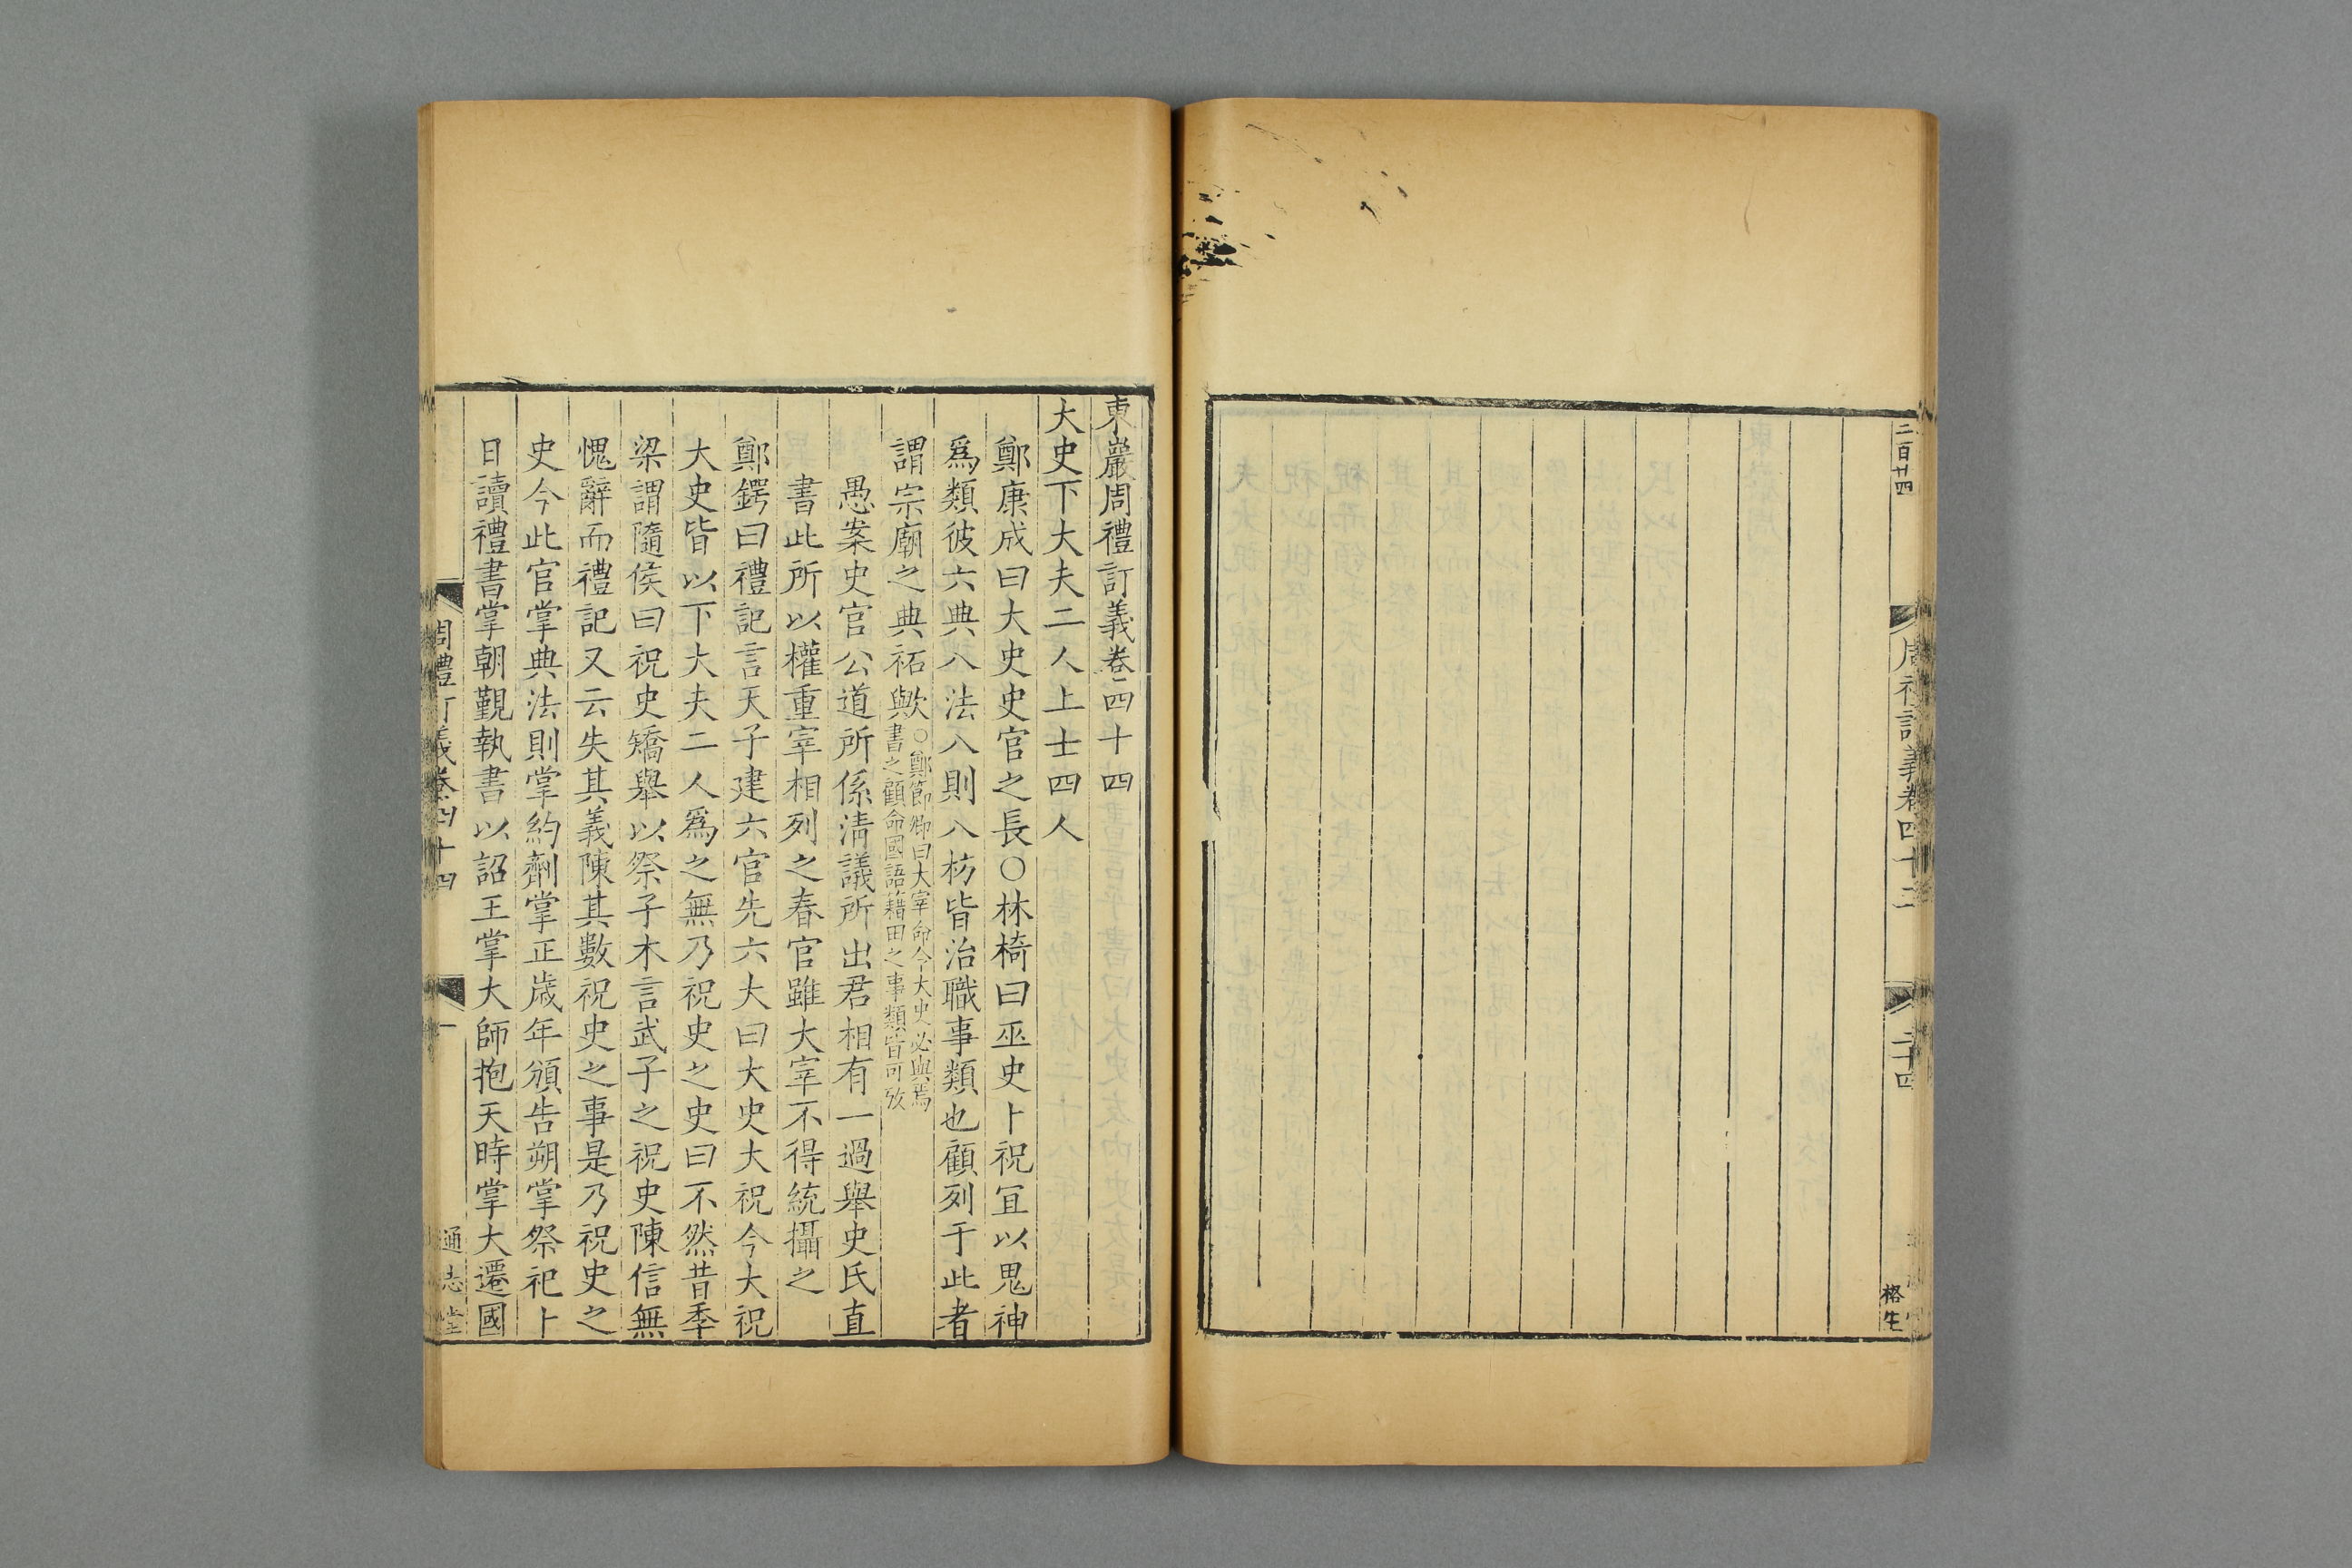 二百廿四
周禮訂義卷四十三
三十四
格生
東巖周禮訂義卷四十四
大史下大夫二人上士四人
鄭康成曰大史史官之長○林椅曰巫史卜祝宜以鬼神
爲類彼六典八法八則八枋皆治職事類也顧列于此者
謂宗廟之典祏歟○鄭節卿曰大宰命令大史必與焉
書之顧命國語藉田之事類皆可攷
愚案史官公道所係淸議所出君相有一過舉史氏直
書此所以權重宰相列之春官雖大宰不得統攝之
鄭鍔曰禮記言天子建六官先六大曰大史大祝今大祝
大史皆以下大夫二人爲之無乃祝史之史曰不然昔季
梁謂隨侯曰祝史矯舉以祭子木言武子之祝史陳信無
愧辭而禮記又云失其義陳其數祝史之事是乃祝史之
史今此官掌典法則掌約劑掌正歲年頒告朔掌祭祀卜
日讀禮書掌朝覲執書以詔王掌大師抱天時掌大遷國
周禮訂義卷四十四
一
通志堂